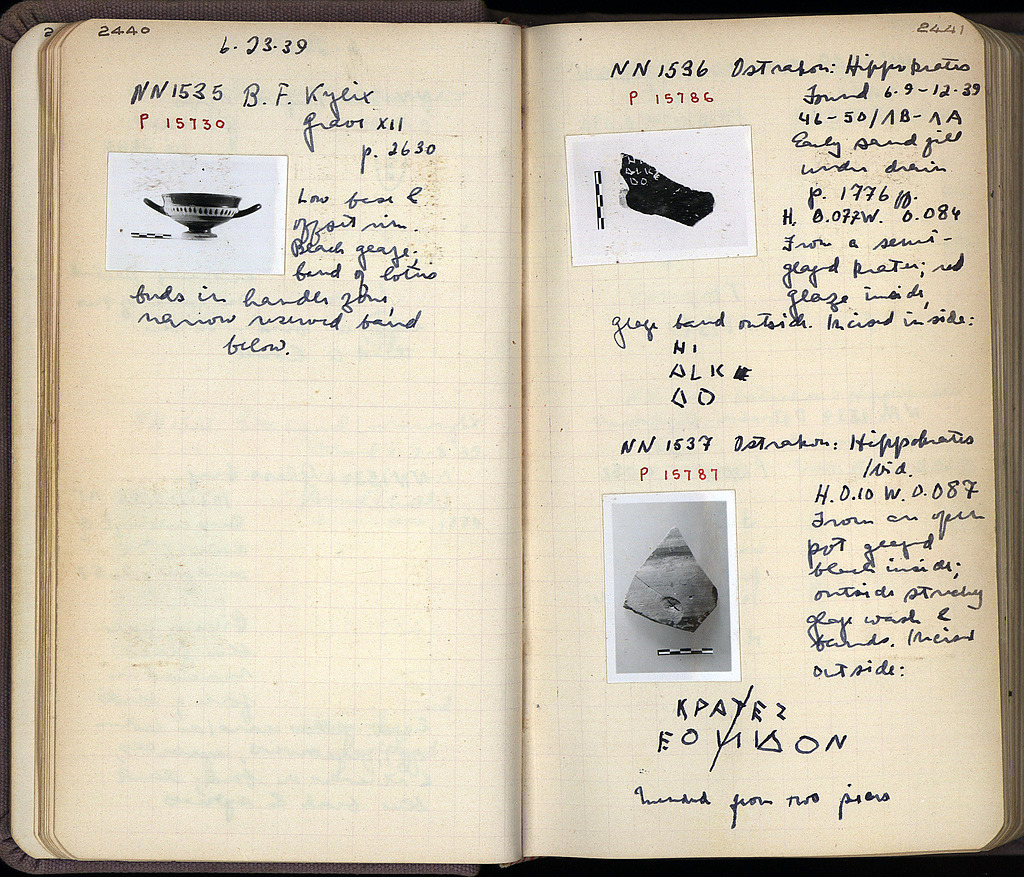 2440
6.23.39
NN1535 B.F. Kylix
P 15730
Grave XII
p. 2630
Low base &
offset rim.
Black glaze;
band of lotus
buds in handle zone,
narrow reserved band
below.
2441
NN 1536 Ostrakon: Hippokrates
P 15786
Found 6.9-12.39
46-50/ΛB-ΛA
Early sand fill
under drain
p. 1776 ff.
H. 0.077 W. 0.084
From a semi-
glazed krater; red
glaze inside,
glaze band outside. Incised inside:
HI
ALK
ΔO
NN 1537 Ostrakon: Hippokrates
P 15787
Ibid.
H. 0.10 W. 0.087
From an open
pot glazed
black inside;
outside streaky
glaze wash &
bands. Incised
outside:
ΚΡΑΤΕΣ
ΕΟΝΙΔΟΝ
Mended from two pieces